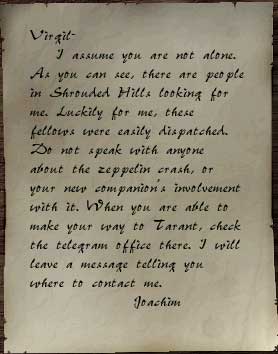 Virgil-
I assume you are not alone.
As you can see, there are people
in Shrouded Hills looking for
me. Luckily for me, these
fellows were easily dispatched.
Do not speak with anyone
about the zeppelin crash, or
your new companion's involvement
with it. When you are able to
make your way to Tarant, check
the telegram office there. I will
leave a message telling you
where to contact me.
Joachim